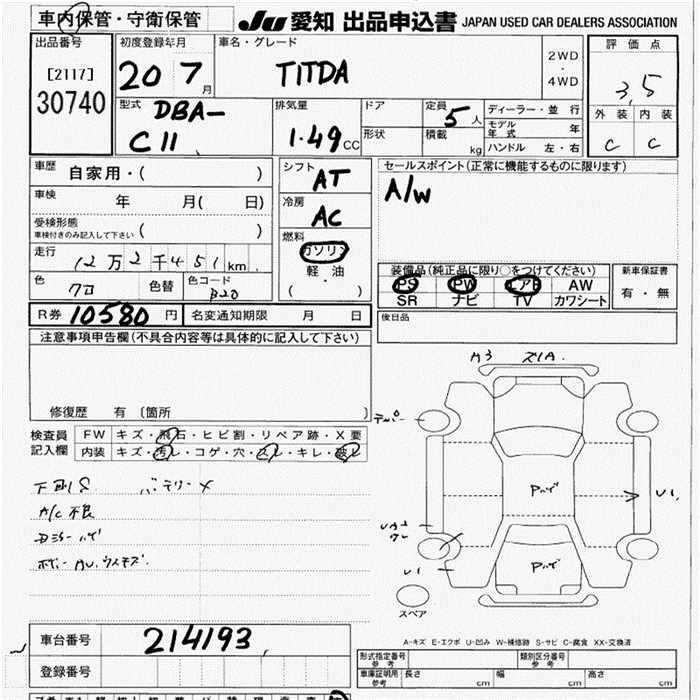 車内保管・守衛保管
JU 愛知 出品申込書 JAPAN USED CAR DEALERS ASSOCIATION
出品番号
[2117]
30740
初度登録年月
20 7月
車名・グレード
TITDA
2WD
・
4WD
評価点
3,5
外装 内装
C C
型式
DBA-
C11
排気量
1.49cc
ドア
形状
定員
5人
積載
kg
ディーラー・並行
モデル年式 年
ハンドル 左・右
車歴
自家用・( )
車検
年 月( 日)
受検形態
車検付きのみ記入して下さい ( )
走行
12万2千451km
色
クロ
色替
色コード
B20
シフト
AT
冷房
AC
燃料
ガソリン
軽油
( ・ )
セールスポイント(正常に機能するものに限ります)
A/W
装備品(純正品に限り○をつけてください)
PS PW エアB AW
SR ナビ TV カワシート
新車保証書
有・無
R券 10580円
名変通知期限 月 日
後日品
注意事項申告欄(不具合内容等は具体的に記入して下さい)
修復歴 有〔箇所 〕
検査員
記入欄
FW キズ・飛石・ヒビ割・リペア跡・X要
内装 キズ・汚レ・コゲ・穴・スレ・キレ・破レ
下廻りS バッテリーメ
A/C不良
ボデーAU.ウスキズ.
A3 ズレA.
テンパー
Pハゲ
U1
Pハゲ
U1
スペア
A-キズ E-エクボ U-凹み W-補修跡 S-サビ C-腐食 XX-交換済
車台番号
214193
登録番号
形式指定番号
参考
類別区分番号
参考
車庫証明用
参考
長さ cm 幅 cm 高さ cm